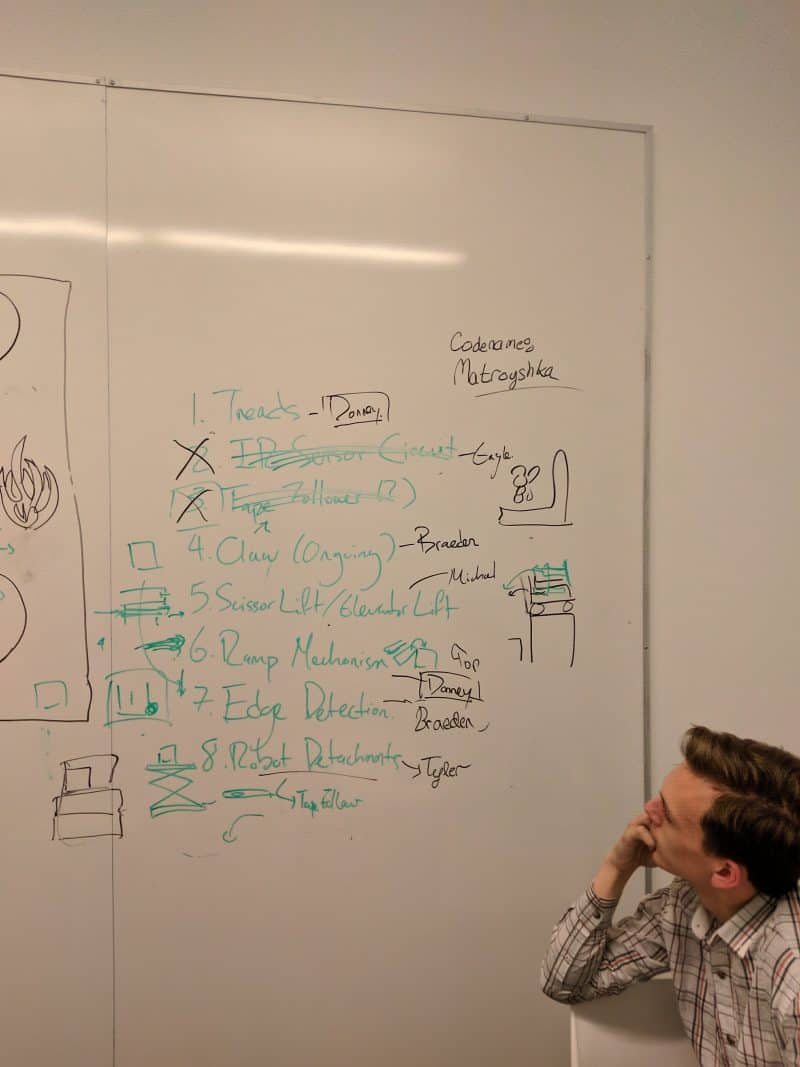 Codenames
Matroyshka
1. Treads - Donney
2. IR Sensor Circuit - Eagle
3. Tape Follower (2)
4. Claw (Ongoing) - Braeden
Michael
5. Scissor Lift / Elevator Lift
6. Ramp Mechanism
Donney
7. Edge Detection
Braeden
8. Robot Detachments → Tyler
Tape Follow